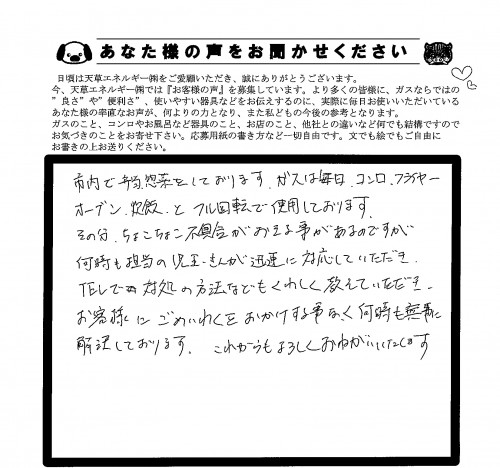 あなた様の声をお聞かせください
日頃は天草エネルギー㈱をご愛顧いただき、誠にありがとうございます。
今、天草エネルギー㈱では『お客様の声』を募集しています。より多くの皆様に、ガスならではの
”良さ”や”便利さ”、使いやすい器具などをお伝えするのに、実際に毎日お使いいただいている
あなた様の率直なお声が、何よりの力となり、また私どもの今後の参考となります。
ガスのこと、コンロやお風呂など器具のこと、お店のこと、他社との違いなど何でも結構ですので
お気づきのことをお寄せ下さい。応募用紙の書き方など一切自由です。文でも絵でもご自由に
お書きの上お送りください。
市内で弁当惣菜をしております。ガスは毎日、コンロ、フライヤー
オーブン、炊飯、と フル回転で使用しております。
その分、ちょこちょこ不具合がおきる事があるのですが
何時も担当の児玉さんが迅速に対応していただき、
TELでの対処の方法などもくわしく教えていただき、
お客様に ごめいわくをおかけする事なく何時も無事に
解決しております。 これからもよろしくおねがいいたします